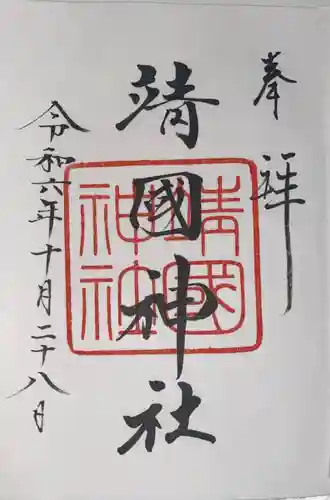 奉拝
靖國神社
靖國
神社
令和六年十月二十八日